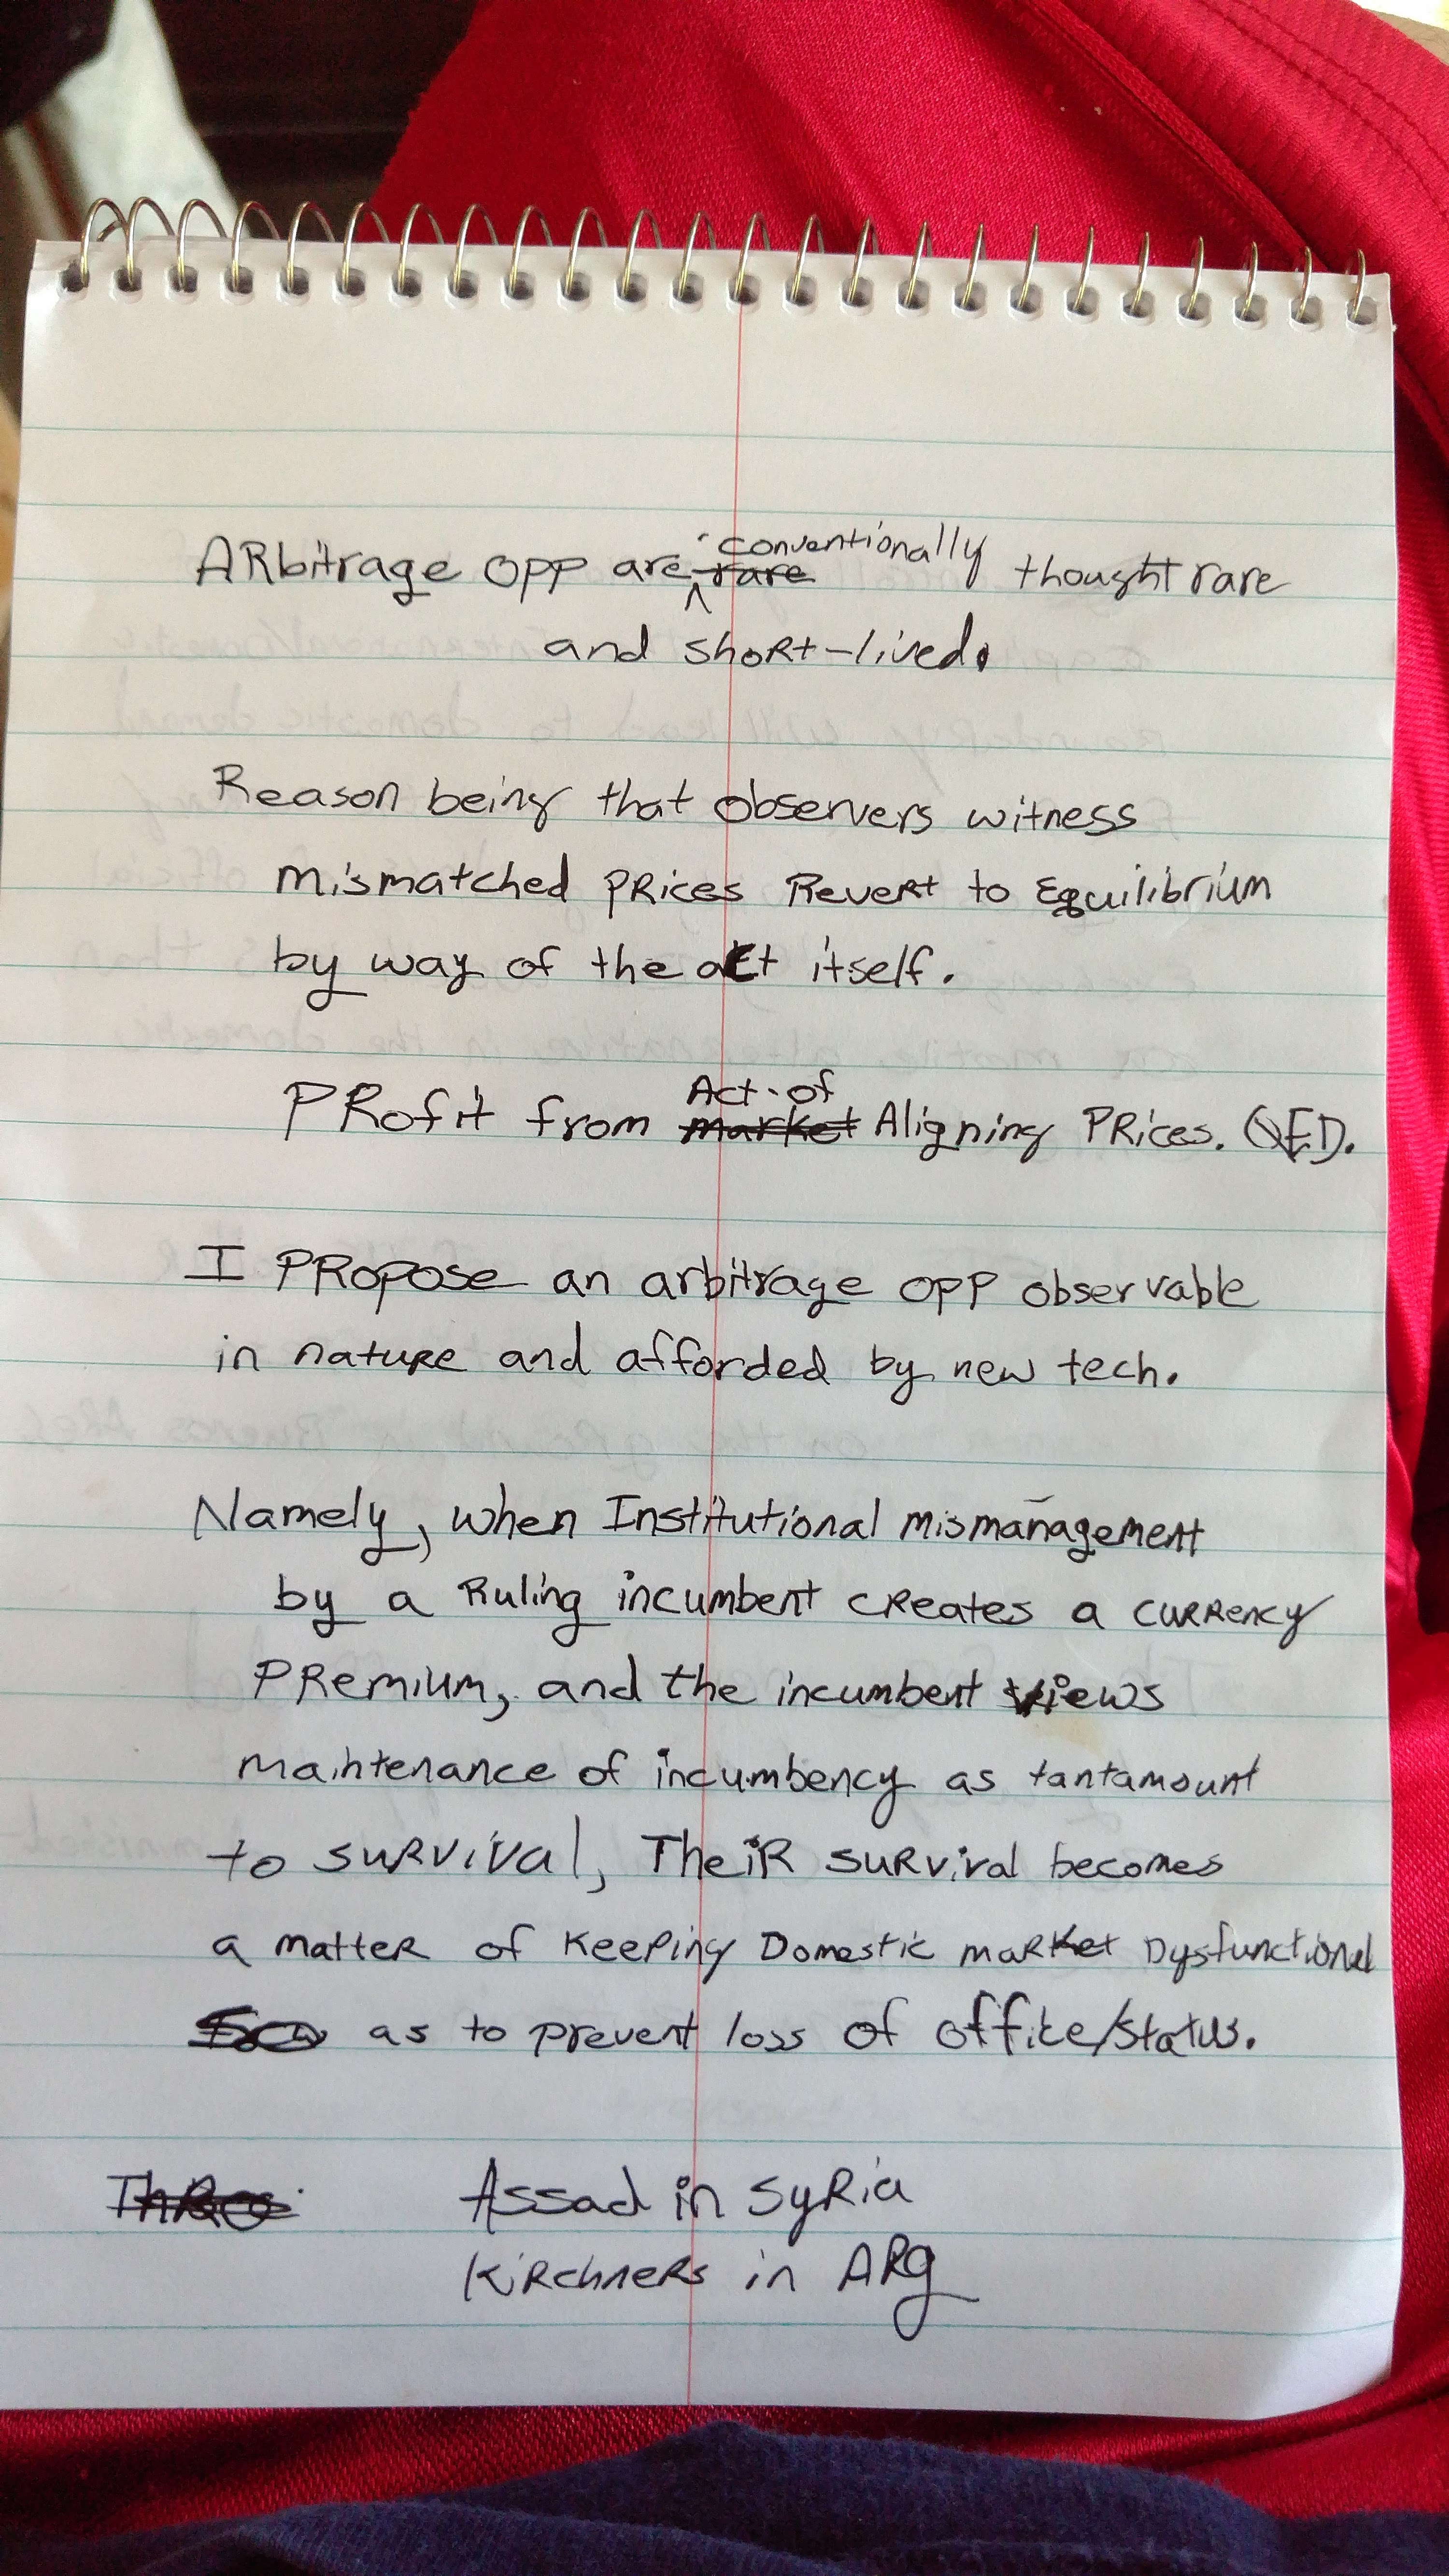 ARbitrage opp are rare conventionally thought rare
and short-lived.
Reason being that observers witness
mismatched prices Revert to Equilibrium
by way of the act itself.
Profit from market Act of Aligning Prices. QED.
I Propose an arbitrage opp observable
in nature and afforded by new tech.
Namely, when Institutional mismanagement
by a Ruling incumbent creates a currency
Premium, and the incumbent views
maintenance of incumbency as tantamount
to survival, Their survival becomes
a matter of Keeping Domestic market Dysfunctional
as to prevent loss of office/status.
Assad in Syria
Kirchners in ARg